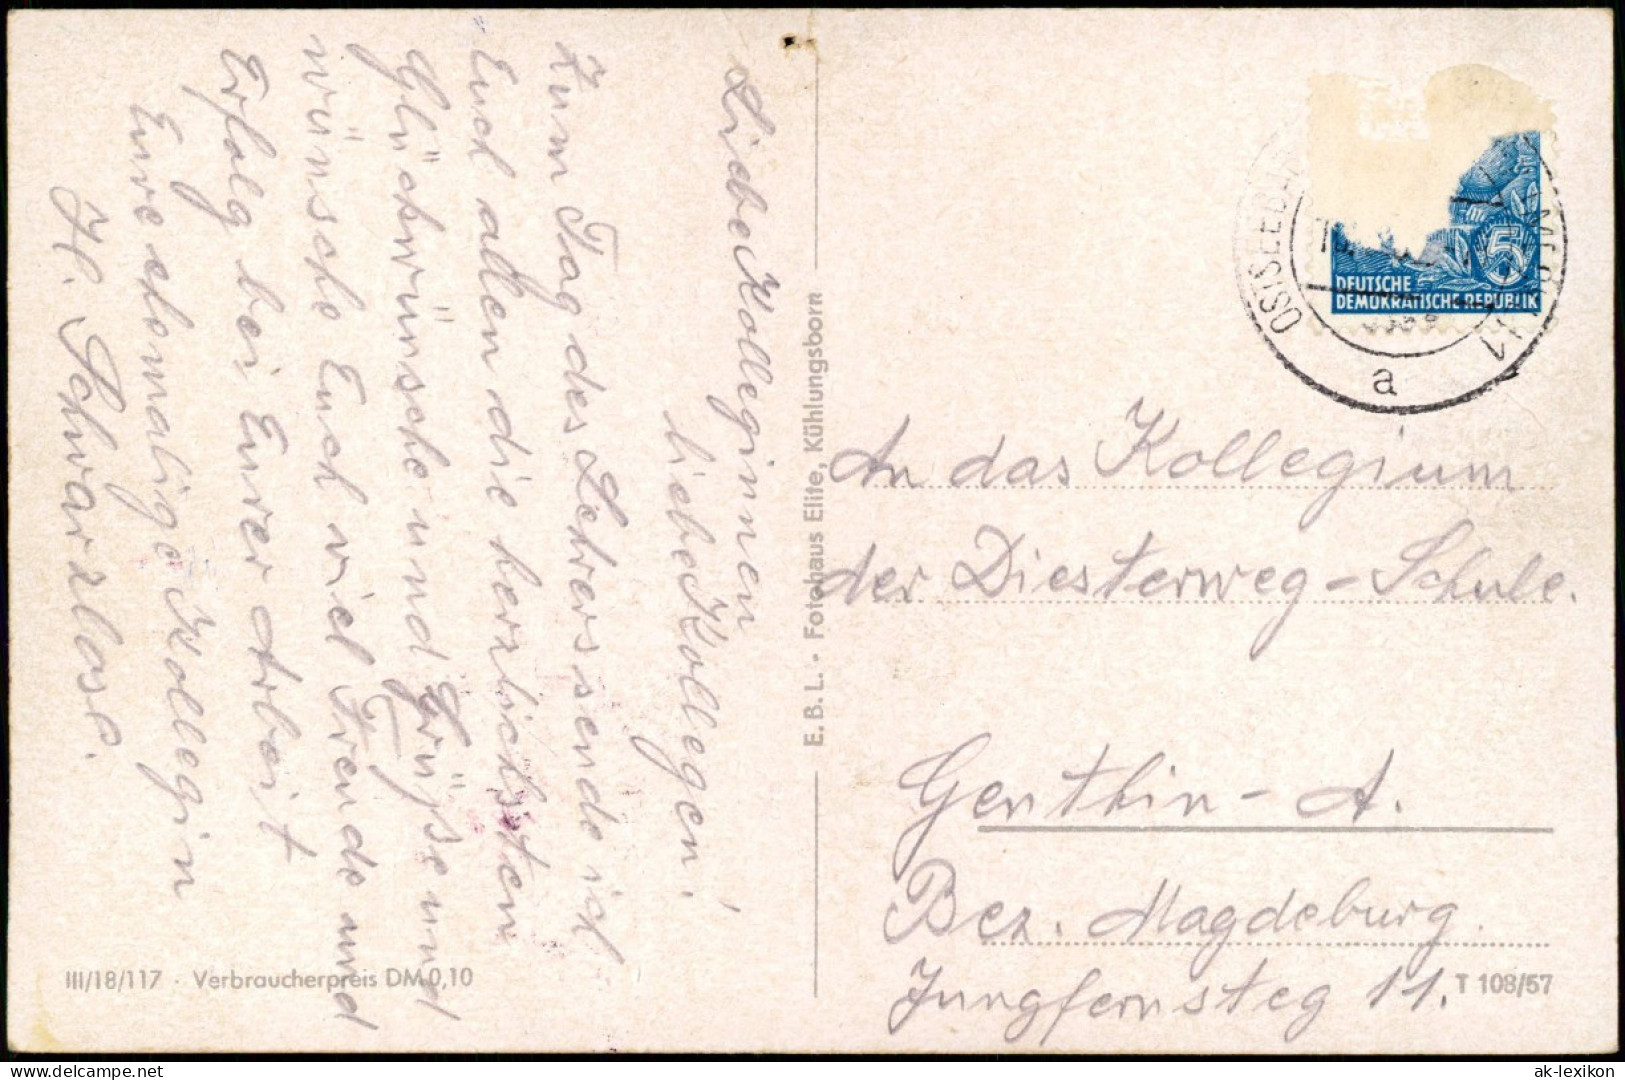 Liebe Kolleginnen
liebe Kollegen!
Zum Tag des Lehrers sende ich
Euch allen die herzlichsten
Glückwünsche und Grüße und
wünsche Euch viel Freude und
Erfolg bei Eurer Arbeit
Eure ehemalige Kollegin
H. Schwarzlose.
III/18/117 · Verbraucherpreis DM 0,10
E. B. L. · Fotohaus Elite, Kühlungsborn
OSTSEEBAD
a
5
DEUTSCHE
DEMOKRATISCHE REPUBLIK
An das Kollegium
der Diesterweg-Schule.
Genthin-A.
Bez. Magdeburg.
Jungfernsteg 11.
T 108/57
www.ansichtskarten-lexikon.de
ak-lexikon